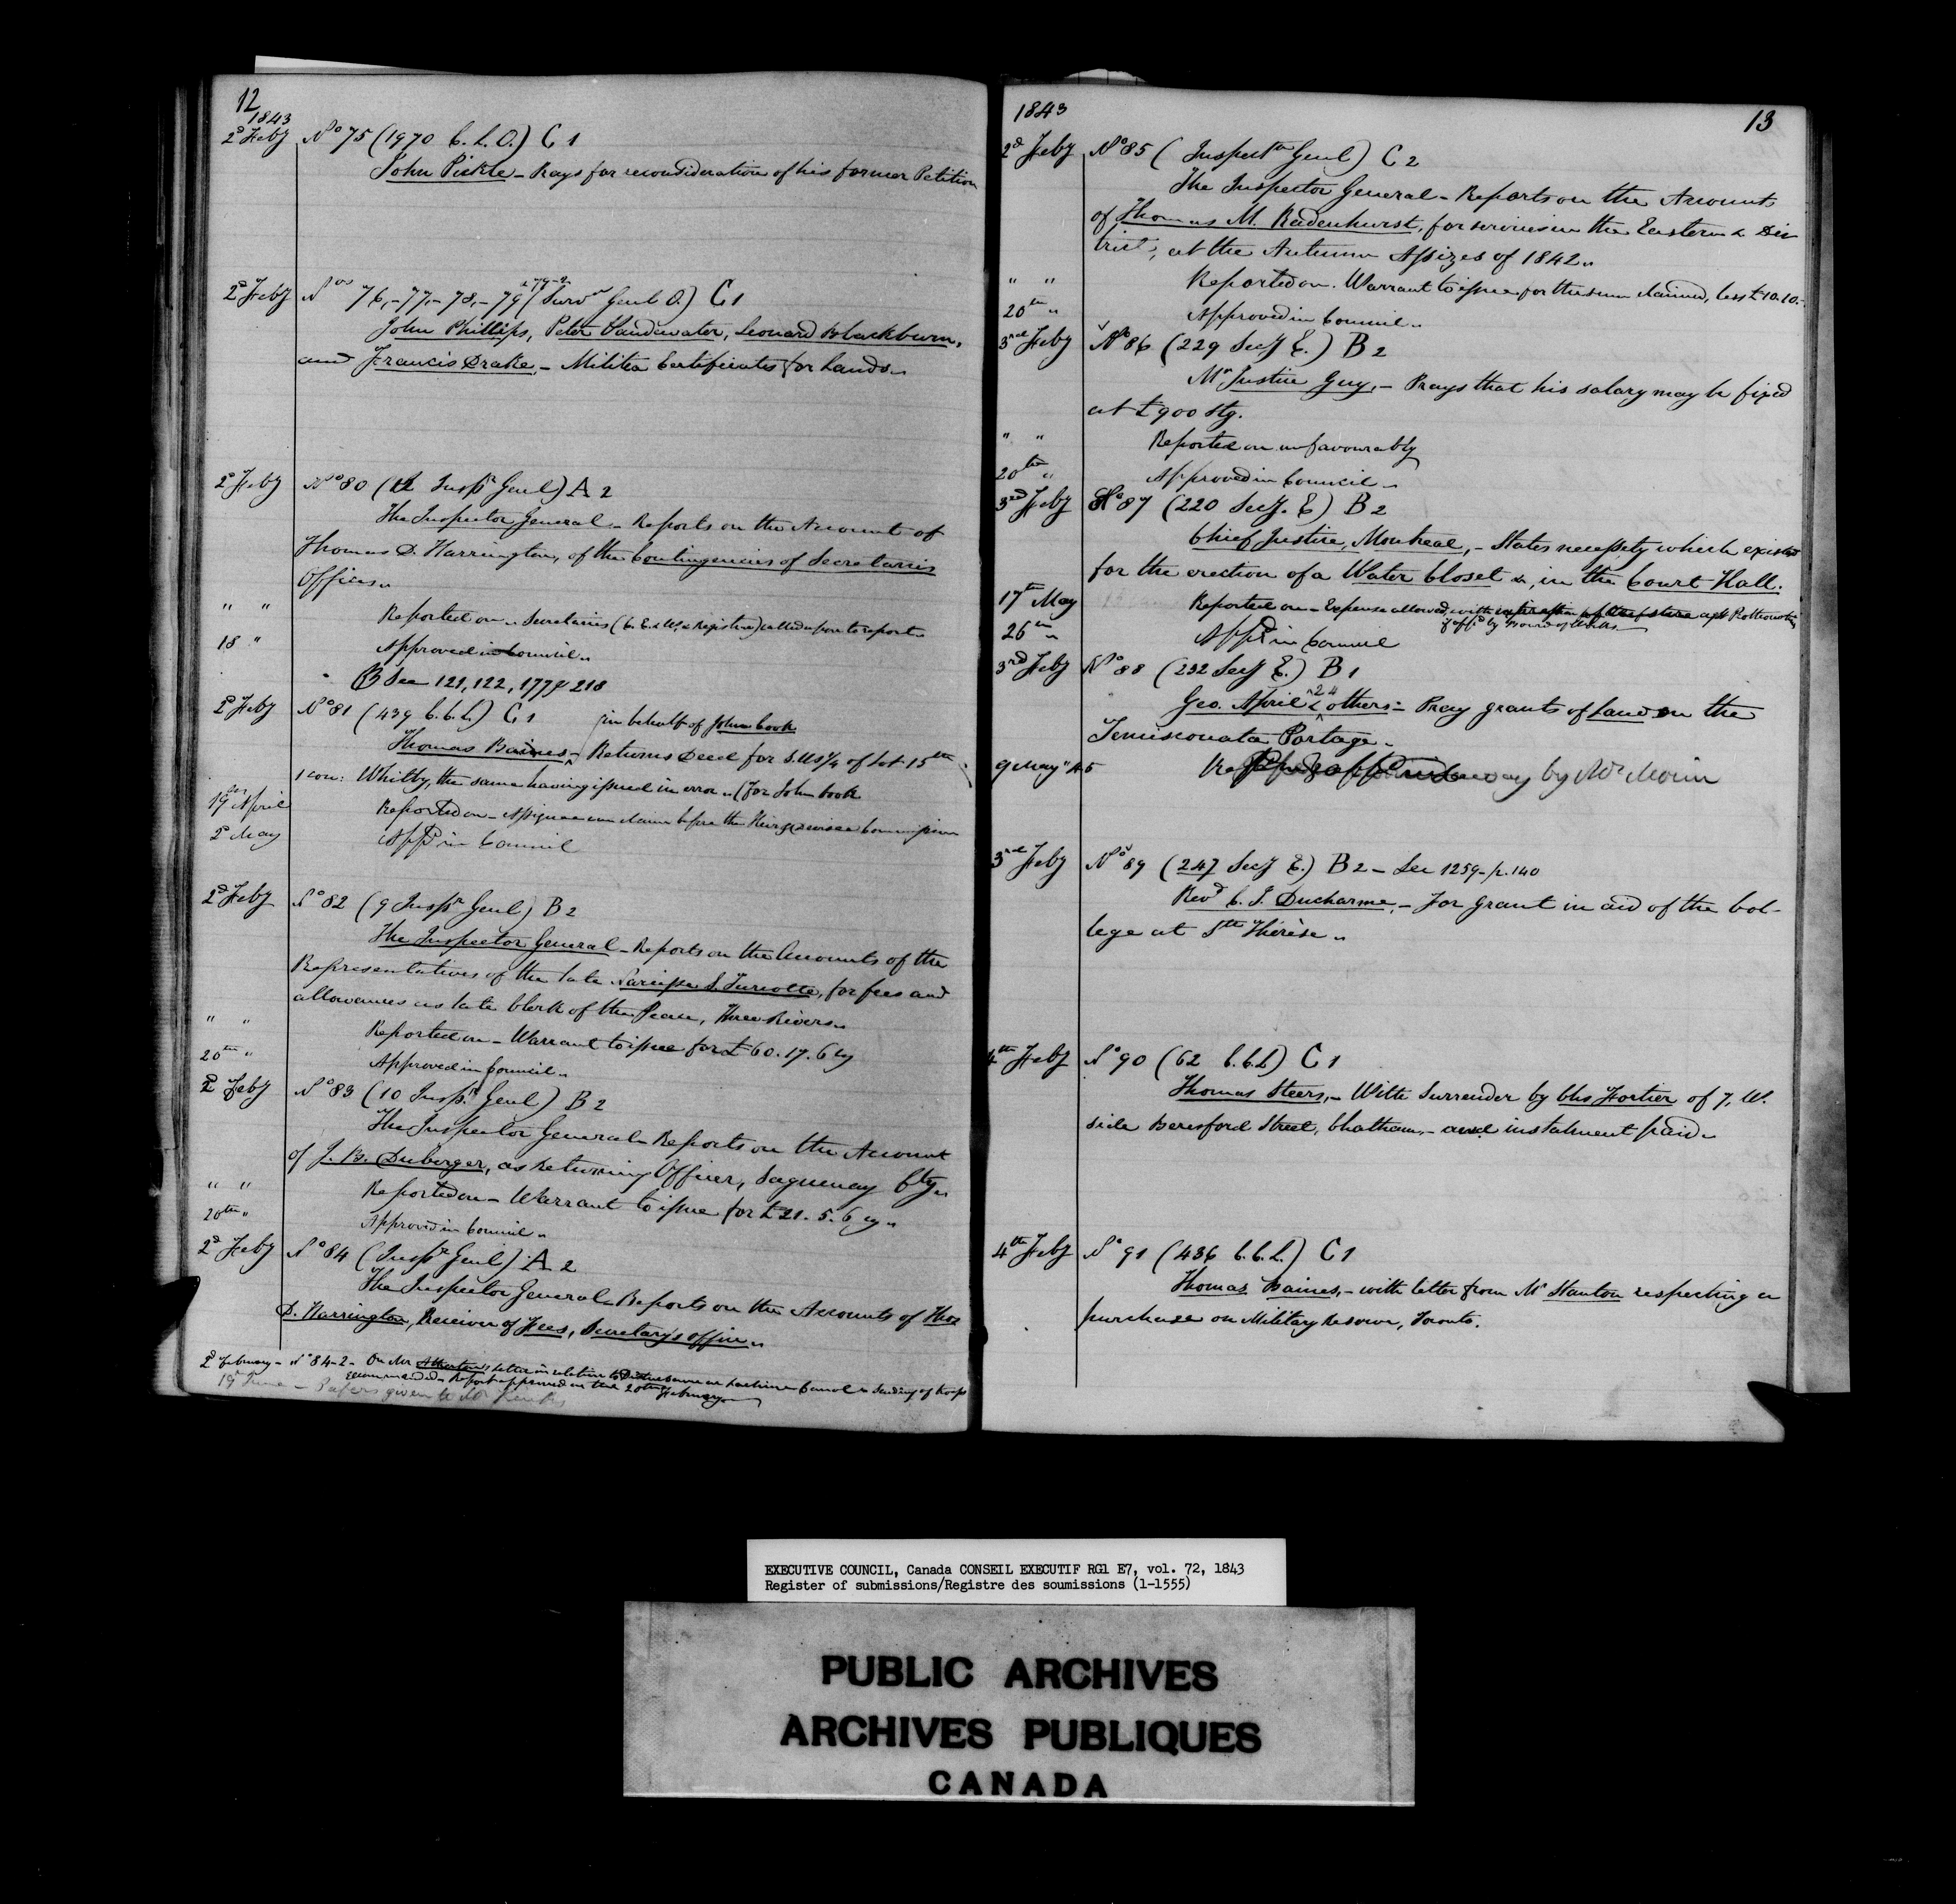 12
1843
2d Feby No 75 (1970 C. L. O.) C 1
John Pickle - Prays for reconsideration of his former Petition
2d Feby Nos 76,-77,-78,-79 & 79-2 (Survr Genl O.) C 1
John Phillips, Peter Vandewater, Leonard Blackburn,
and Francis Drake, - Militia Certificates for Lands
2d Feby No 80 (12 Inspr Genl) A 2
The Inspector General - Reports on the Account of
Thomas D. Harrington, of the Contingencies of Secretaries
Offices
" " Reported on - Secretaries (C. E. & W. & Registrar) called upon to report
18 " Approved in Council
See 121, 122, 177 & 218
2d Feby No 81 (439 C. C. L.) C 1
in behalf of John Cook
Thomas Baines - Returns Deed for S. of Lot 15th
1 con: Whitby, the same having issued in error (for John Cook
19 April Reported on - Assignee can claim before the Heir & Devisee Commission
2d May Appd in Council
2d Feby No 82 (9 Inspr Genl) B 2
The Inspector General - Reports on the Accounts of the
Representatives of the late Narcisse S. Turcotte, for fees and
allowances as late Clerk of the Peace, Three Rivers
" " Reported on - Warrant to issue for £60. 17. 6 cy
20th " Approved in Council
2d Feby No 83 (10 Inspr Genl) B 2
The Inspector General - Reports on the Account
of J. B. Duberger, as Returning Officer, Saguenay Cty
" " Reported on - Warrant to issue for £21. 5. 6 cy
20th " Approved in Council
2d Feby No 84 (Inspr Genl) A 2
The Inspector General - Reports on the Accounts of Thos
D. Harrington, Receiver of Fees, Secretary's office
2d February - No 84-2 - On Mr letter in relation to Lachine Canal & sending of troops
recommended - Report approved on the 20th February
19 June - Papers given to Mr
1843
13
2d Feby No 85 (Inspectr Genl) C 2
The Inspector General - Reports on the Account
of Thomas M. Radenhurst, for services in the Eastern & Dis
trict, at the Autumn Assizes of 1842
" " Reported on. Warrant to issue for the sum claimed, less £10.10.-
20th " Approved in Council
3rd Feby No 86 (229 Secy E.) B 2
Mr Justice Guy, - Prays that his salary may be fixed
at £900 Stg.
" " Reported on unfavourably
20th " Approved in Council
3rd Feby No 87 (220 Secy. E) B 2
Chief Justice, Montreal, - States necessity which exists
for the erection of a Water Closet &, in the Court Hall.
17th May Reported on - Expense allowed, with
if appd by Board of Works
26th " Appd in Council
3rd Feby No 88 (232 Secy E.) B 1
Geo. April & 24 others - Pray grants of Land on the
Temisconata Portage
9 May "45 by Mr Morin
3rd Feby No 89 (247 Secy E.) B 2 - See 1259 - p. 140
Revd C. J. Ducharme, - For grant in aid of the Col-
lege at Ste Thérèse
4th Feby No 90 (62 C.C.L) C 1
Thomas Steers, - With Surrender by Chs Fortier of 7, W.
side Beresford Street, Chatham, - and instalment paid
4th Feby No 91 (436 C. C. L.) C 1
Thomas Baines, - with letter from Mr Stanton respecting a
purchase on Military Reserve, Toronto.
EXECUTIVE COUNCIL, Canada CONSEIL EXECUTIF RG1 E7, vol. 72, 1843
Register of submissions/Registre des soumissions (1-1555)
PUBLIC ARCHIVES
ARCHIVES PUBLIQUES
CANADA